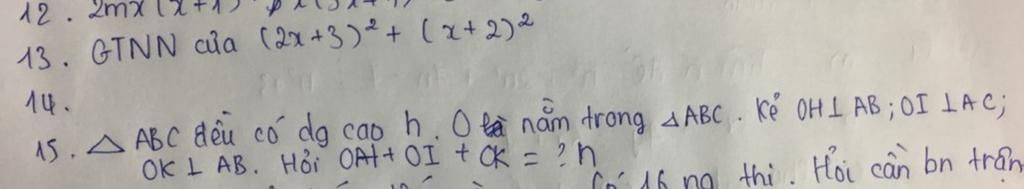 12. 2mx(x+1)
13. GTNN của (2x+3)² + (x+2)²
14.
15. △ ABC đều có dg cao h. O nằm trong △ABC. Kẻ OH⊥AB; OI⊥AC;
OK⊥AB. Hỏi OAH + OI + CK = ? h
Có 16 ng thi. Hỏi cần bn trận